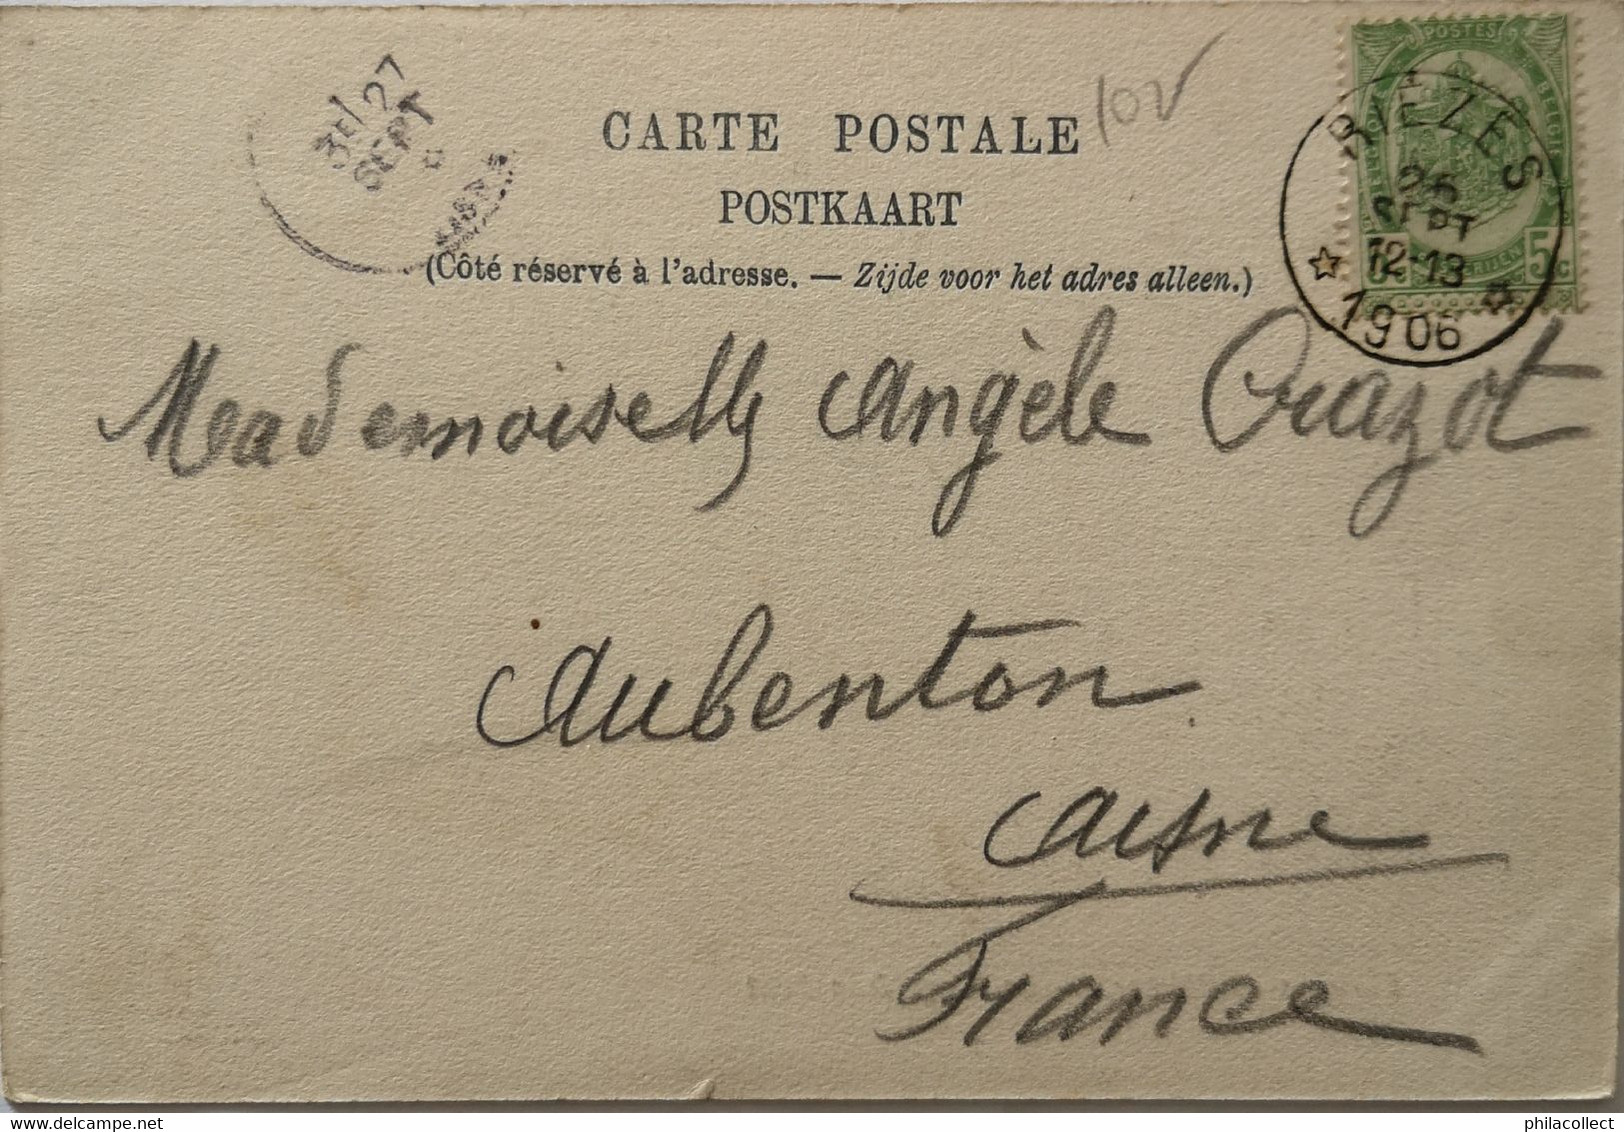 CARTE POSTALE
102
POSTKAART
(Côté réservé à l'adresse. — Zijde voor het adres alleen.)
POSTES
5 5 c
RIÈZES
26
SEPT
12-13
1906
3E/27
SEPT
AISNE
Mademoiselle Angèle Cruazot
Aubenton
Aisne
France
delcampe.net
philacollect